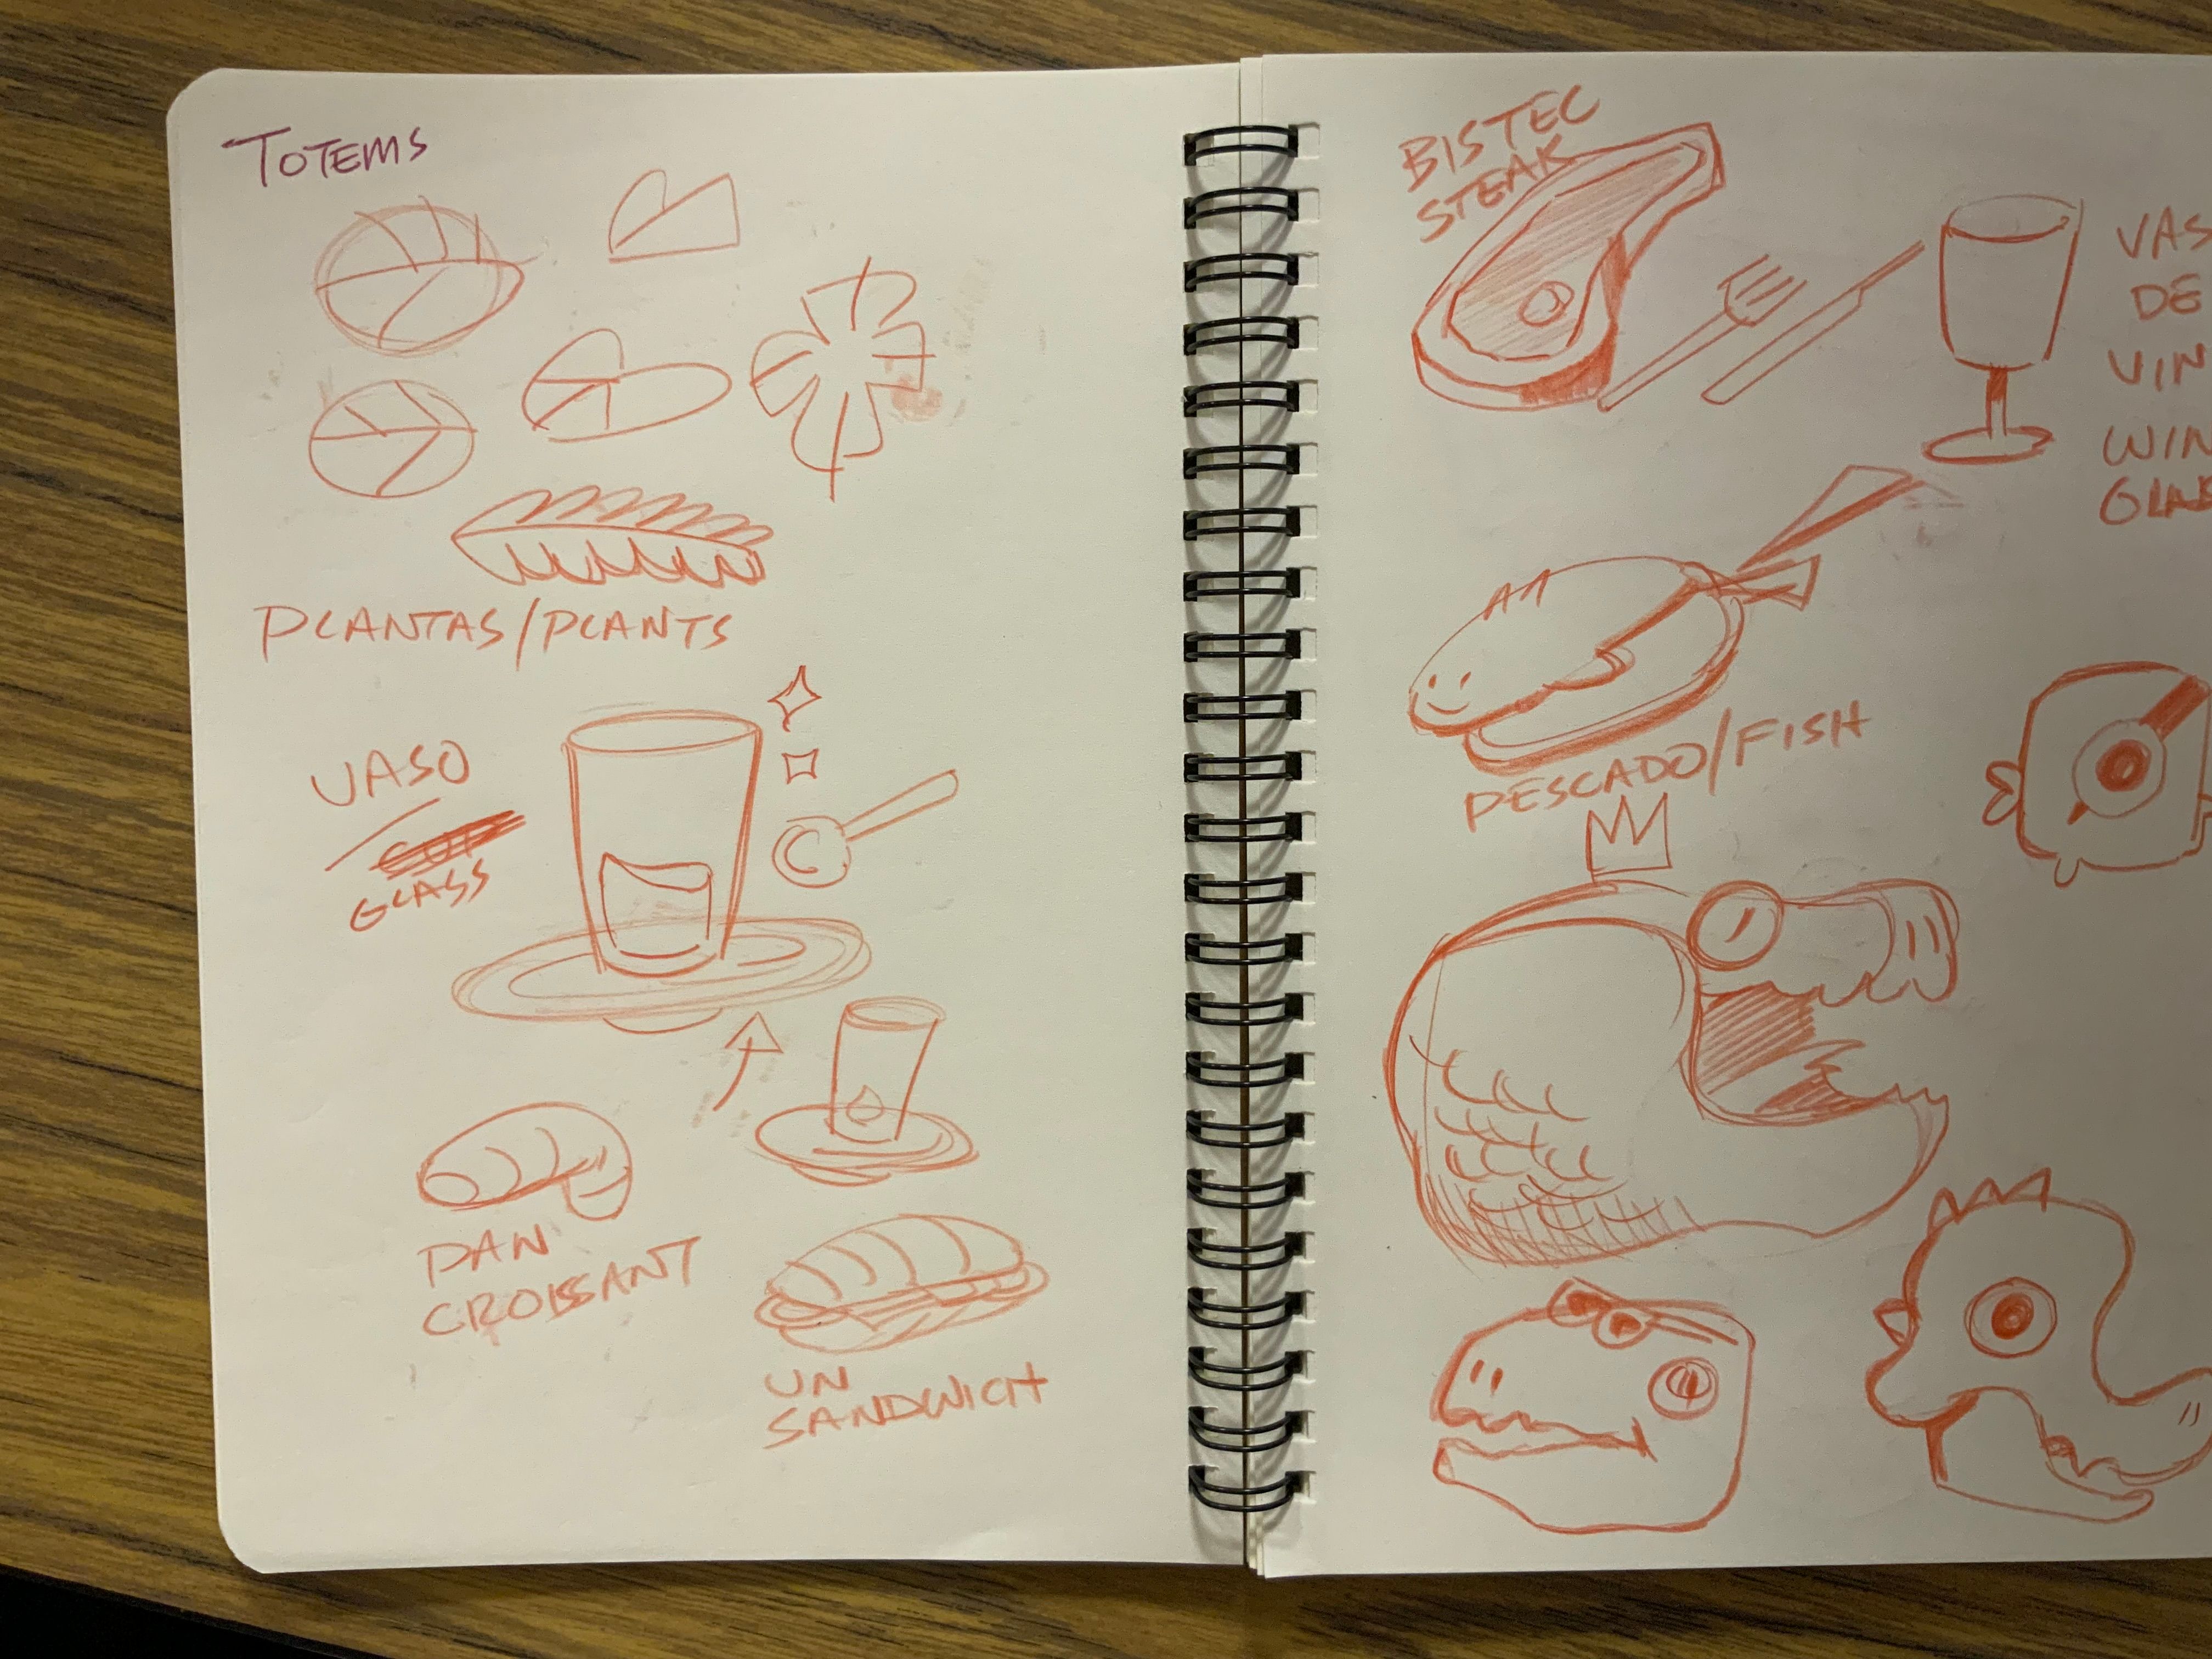 TOTEMS
PLANTAS/PLANTS
VASO
CUP
GLASS
PAN
CROISSANT
UN
SANDWICH
BISTEC
STEAK
VAS
DE
VIN
WIN
GLAS
PESCADO/FISH